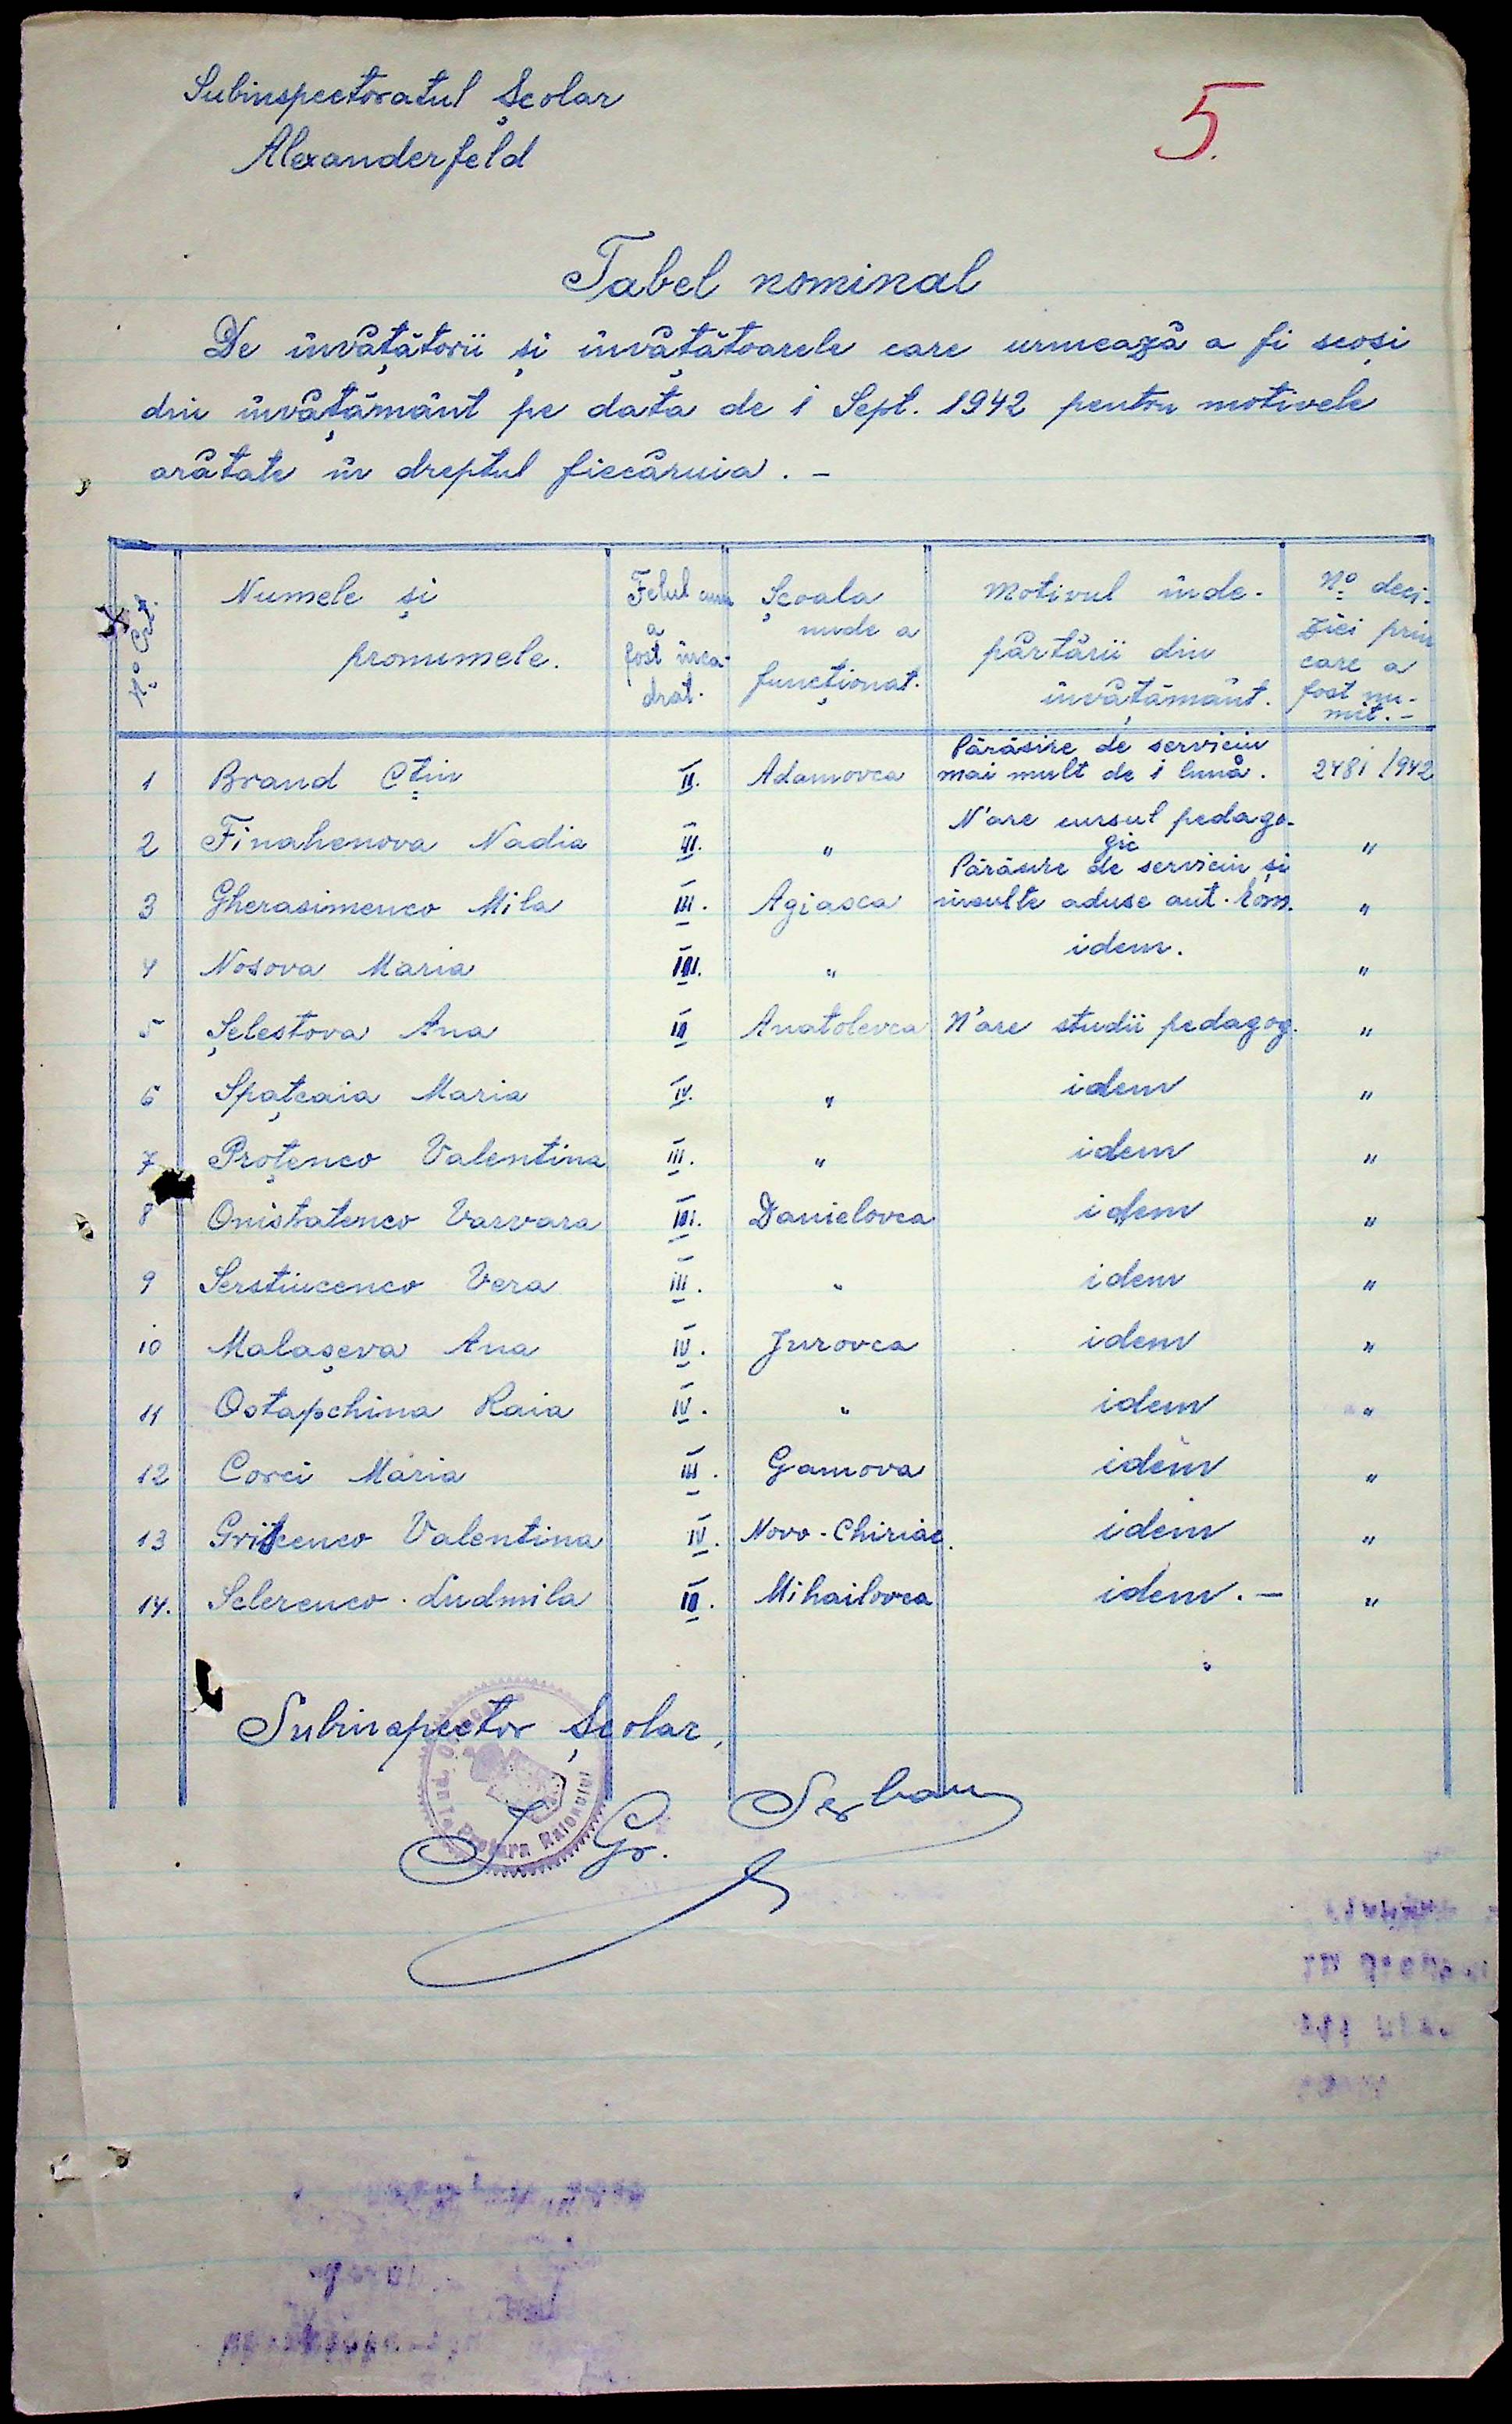 Subinspectoratul Școlar
5.
Alexanderfeld
Tabel nominal
De învățătorii și învățătoarele care urmează a fi scoși
din învățământ pe data de 1 Sept. 1942 pentru motivele
arătate în dreptul fiecăruia. -
No Crt.
Numele și
pronumele.
Felul cum
a
fost înca-
drat.
Școala
unde a
funcționat.
Motivul înde-
părtării din
învățământ.
No deci-
ziei prin
care a
fost nu-
mit. -
1 Brand Ctin II. Adamovca Părăsire de serviciu mai mult de 1 lună. 2481/942
2 Finahenova Nadia III. " N'are cursul pedago-gic "
3 Gherasimenco Mila III. Agiasca Părăsire de serviciu și insulte aduse aut. Rom. "
4 Nosova Maria III. " idem. "
5 Șelestova Ana III Anatolevca N'are studii pedagog. "
6 Spațcaia Maria IV. " idem "
7 Proțenco Valentina III. " idem "
8 Onistatenco Varvara III. Danielovca idem "
9 Serstiucenco Vera III. " idem "
10 Malașeva Ana IV. Jurovca idem "
11 Ostapchina Raia IV. " idem "
12 Corci Maria III. Gamova idem "
13 Gritcenco Valentina IV. Novo-Chiriac. idem "
14. Sclerenco Ludmila III. Mihailovca idem. - "
Subinspector Școlar,
Gr. Serban
Pretura Raionului